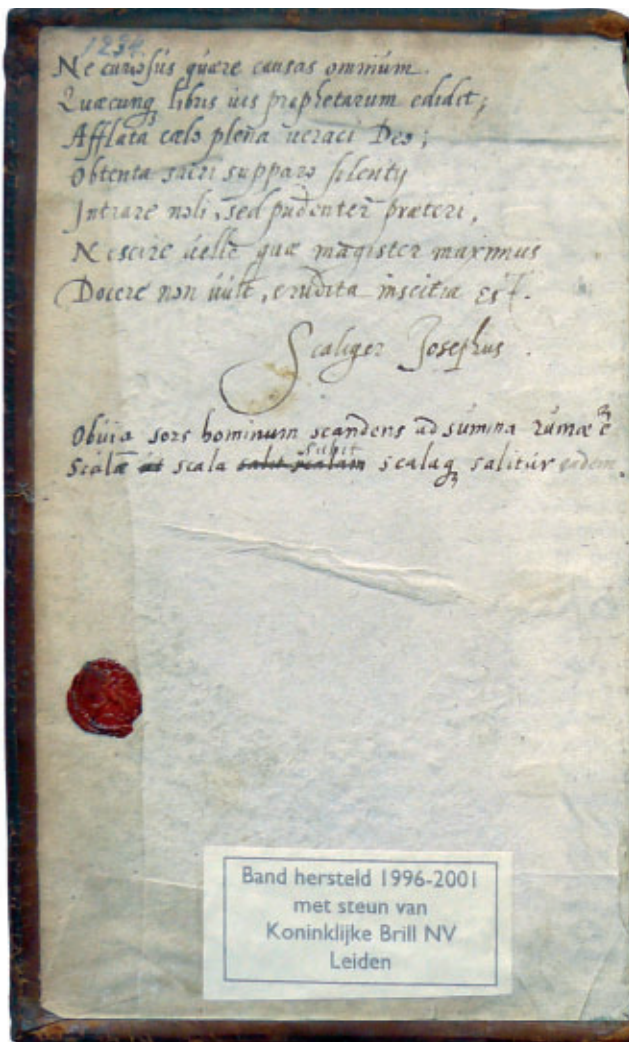 1234.
Ne curiosus quære causas omnium.
Quæcunq libris uis prophetarum edidit;
Afflata cælo plena ueraci Deo;
Obtenta sacri supparo silentij
Intrare noli, sed pudenter præteri,
Nescire uelle quæ magister maximus
Docere non uult, erudita inscitia est.
Scaliger Josephus.
Obuia sors hominum scandens ad summa
subit
Scala scala scalaq salitur eadem.
Band hersteld 1996-2001
met steun van
Koninklijke Brill NV
Leiden